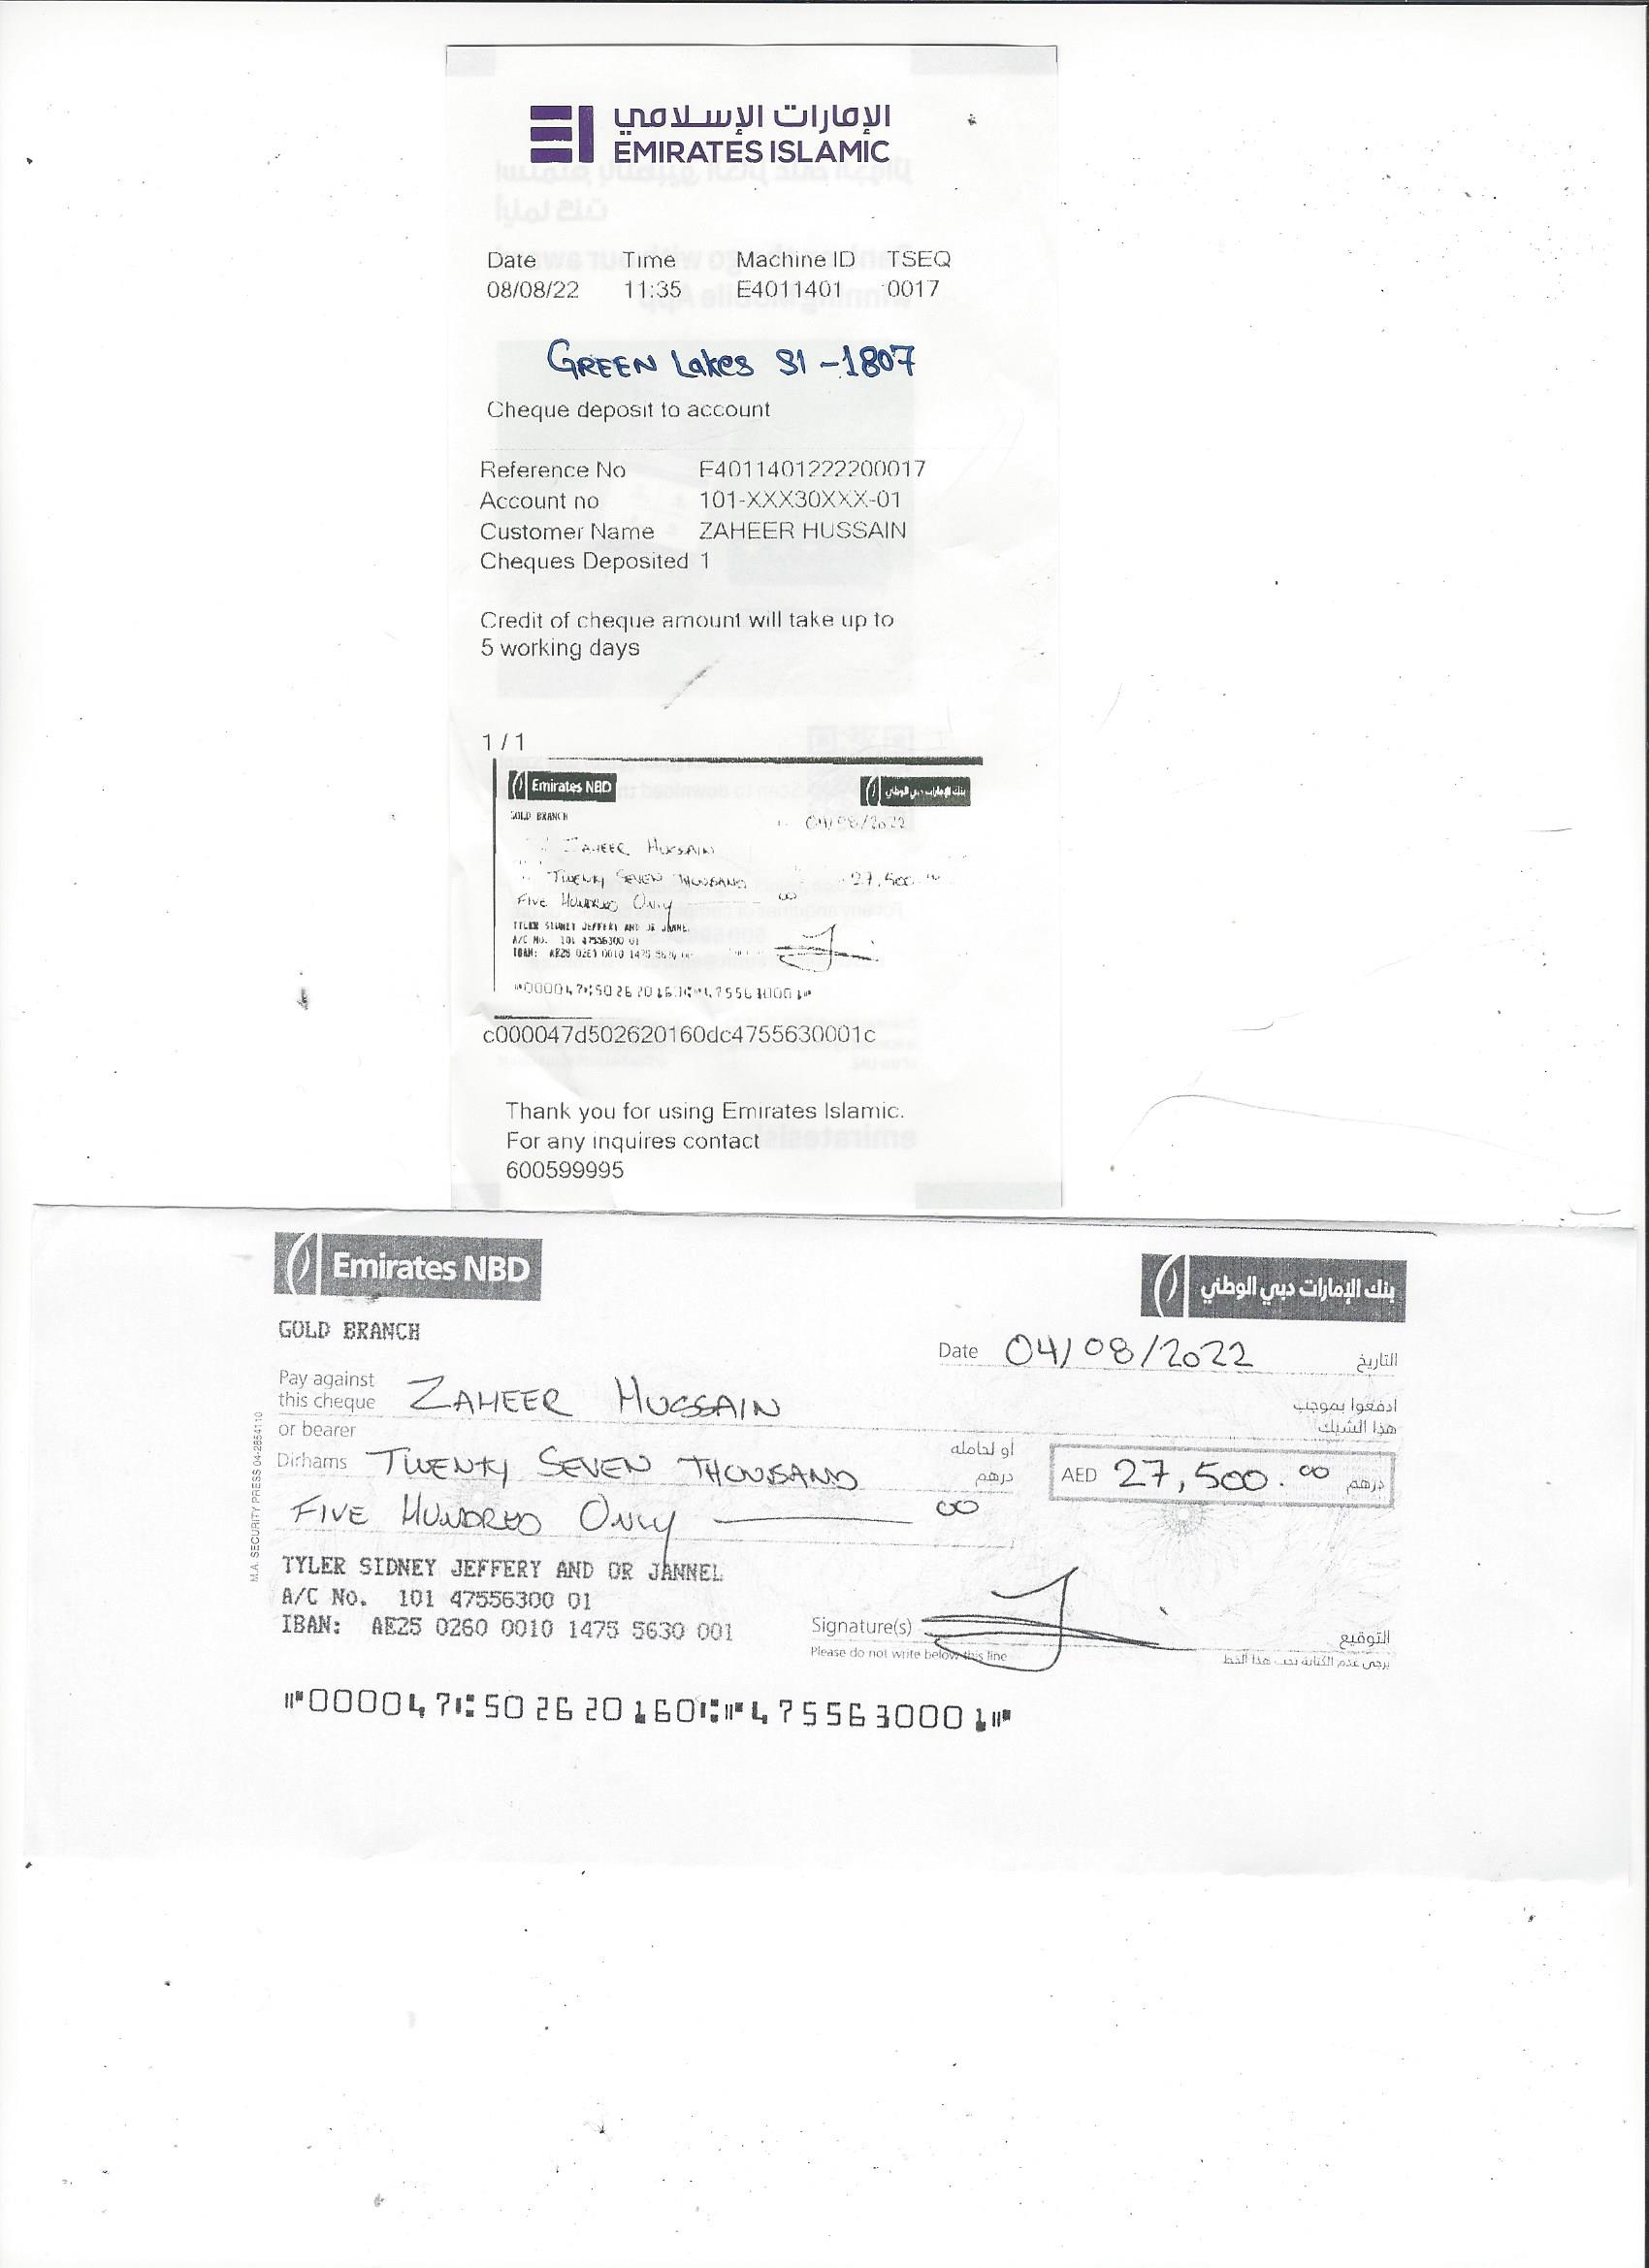 الإمارات الإسلامي
EMIRATES ISLAMIC
Date Time Machine ID TSEQ
08/08/22 11:35 E4011401 0017
GREEN Lakes S1-1807
Cheque deposit to account
Reference No E4011401222200017
Account no 101-XXX30XXX-01
Customer Name ZAHEER HUSSAIN
Cheques Deposited 1
Credit of cheque amount will take up to
5 working days
1 / 1
Emirates NBD بنك الإمارات دبي الوطني
GOLD BRANCH
04/08/2022
ZAHEER HUSSAIN
TWENTY SEVEN THOUSAND 27,500.00
FIVE HUNDRED ONLY 00
TYLER SIDNEY JEFFERY AND OR JANNEL
A/C No. 101 47556300 01
IBAN: AE25 0260 0010 1475 5630
⑈000047⑆502620160⑆⑈4755630001⑈
c000047d502620160dc4755630001c
Thank you for using Emirates Islamic.
For any inquires contact
600599995
Emirates NBD بنك الإمارات دبي الوطني
GOLD BRANCH
Date 04/08/2022 التاريخ
Pay against this cheque ZAHEER HUSSAIN ادفعوا بموجب هذا الشيك
or bearer أو لحامله
Dirhams TWENTY SEVEN THOUSAND درهم AED 27,500.00 درهم
FIVE HUNDRED ONLY 00
TYLER SIDNEY JEFFERY AND OR JANNEL
A/C No. 101 47556300 01
IBAN: AE25 0260 0010 1475 5630 001
Signature(s) التوقيع
Please do not write below this line يرجى عدم الكتابة تحت هذا الخط
⑈000047⑆502620160⑆⑈4755630001⑈
M.A. SECURITY PRESS 04-2854110